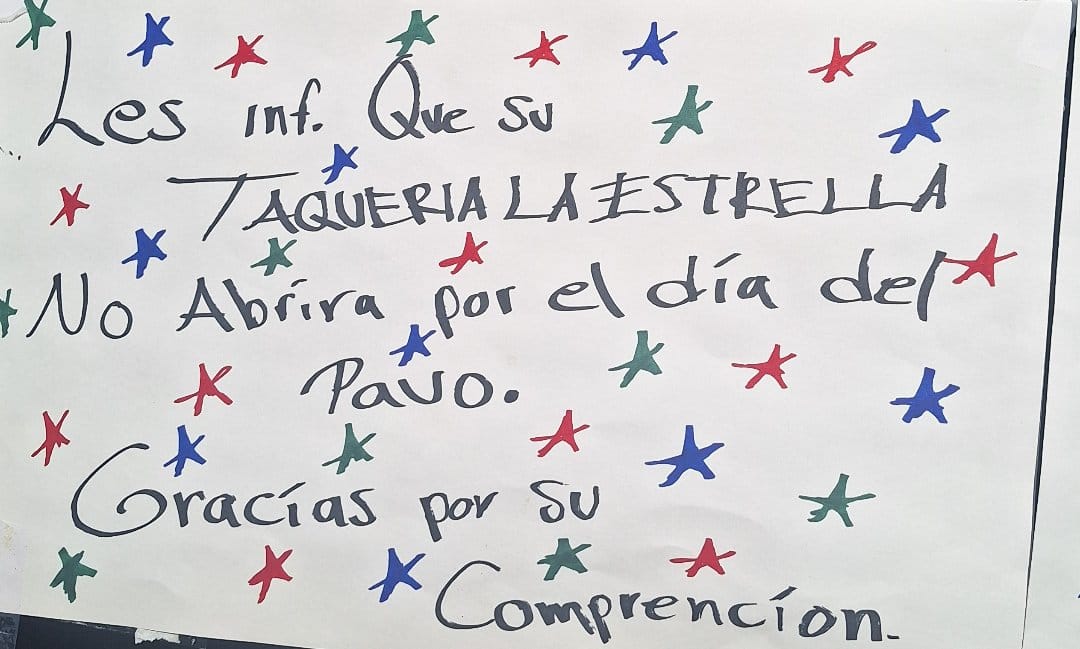 Les inf. Que su
TAQUERIA LA ESTRELLA
No Abrira por el día del
Pavo.
Gracías por su
Comprencíon.